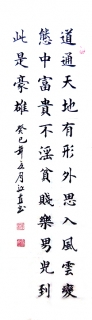 道通天地有形外思入風雲變
態中富貴不淫貧賤樂男兒到
此是豪雄 癸巳年五月